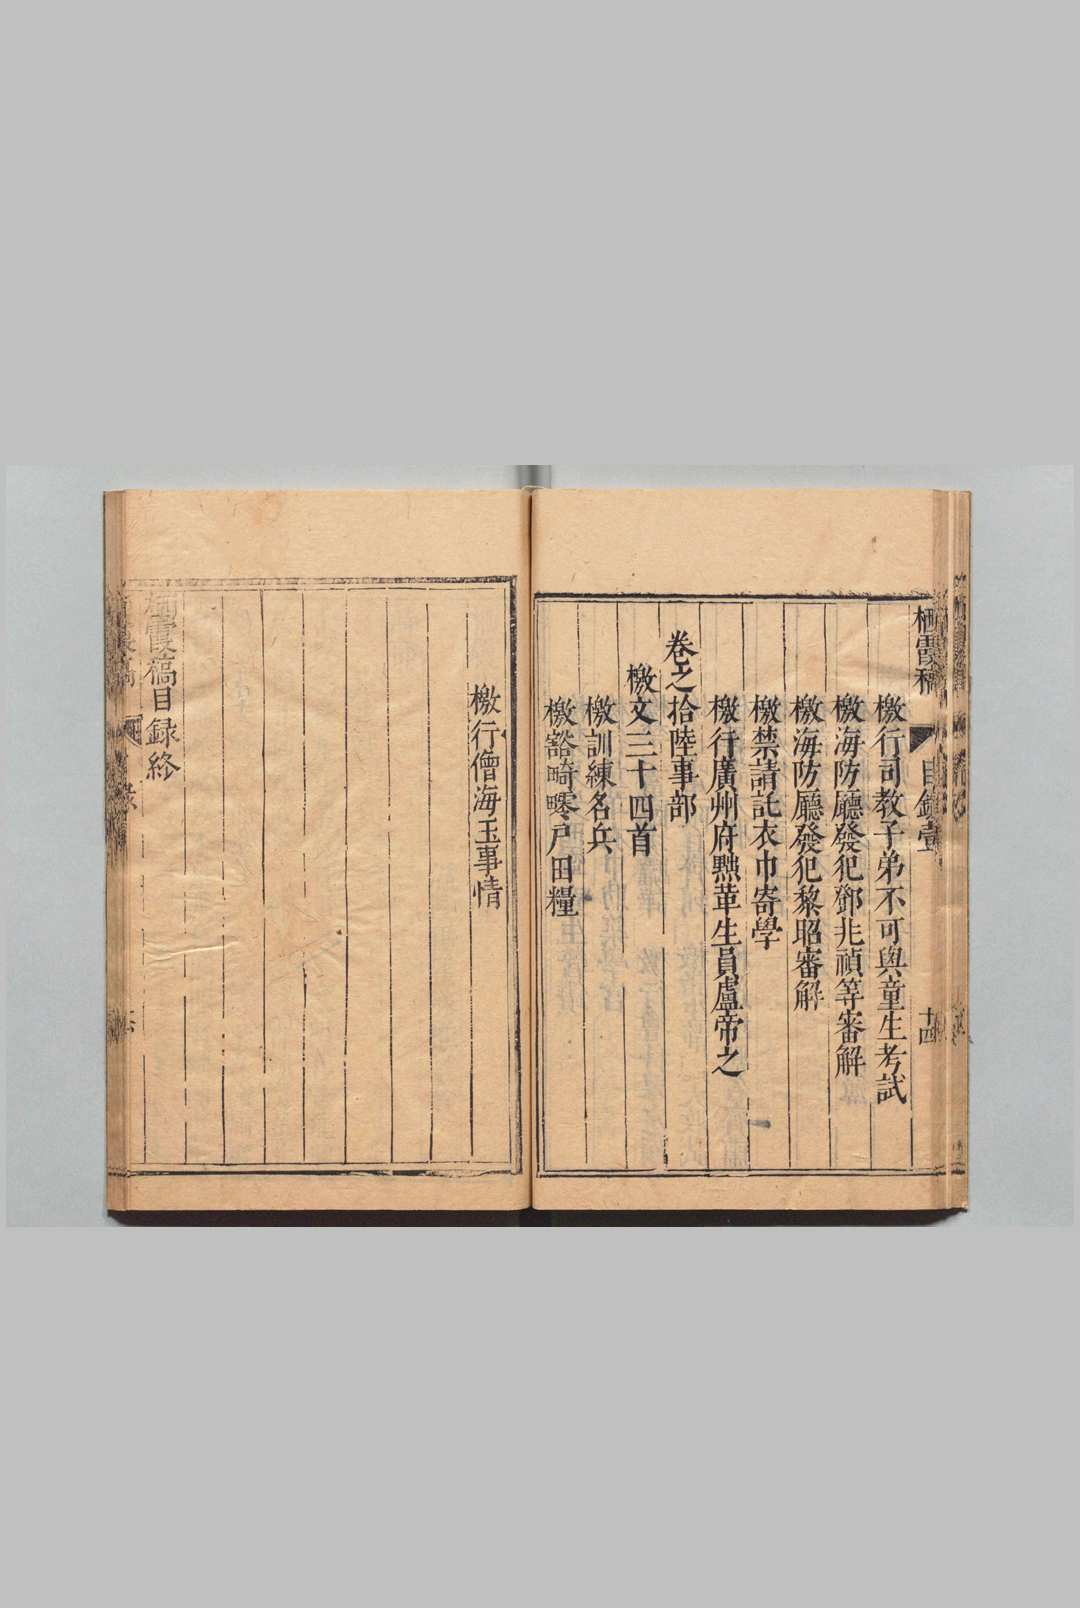 栖霞稿 目錄壹 十四
檄行司教子弟不可與童生考試
檄海防廳發犯鄧兆禎等審解
檄海防廳發犯黎昭審解
檄禁請託衣巾寄學
檄行廣州府黜革生員盧帝之
卷之拾陸事部
檄文三十四首
檄訓練名兵
檄豁畸零戶田糧
檄行僧海玉事情
栖霞稿目録終